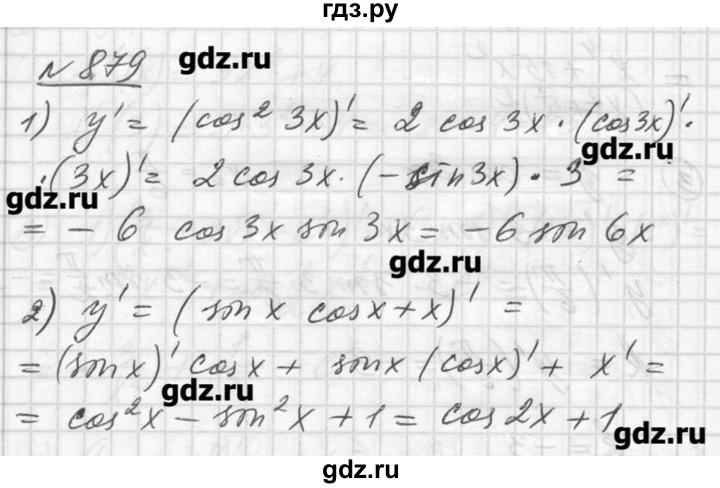 гдз.ру
№ 879
gdz.ru
1) y' = (cos² 3x)' = 2 cos 3x · (cos3x)' ·
gdz.ru
· (3x)' = 2 cos 3x · (− sin3x) · 3 =
gdz.ru
= − 6 cos 3x sin 3x = − 6 sin 6x
gdz.ru
2) y' = (sin x cosx + x)' =
= (sinx)' cosx + sinx (cosx)' + x' =
gdz.ru
= cos²x − sin²x + 1 = cos2x + 1
gdz.ru
gdz.ru